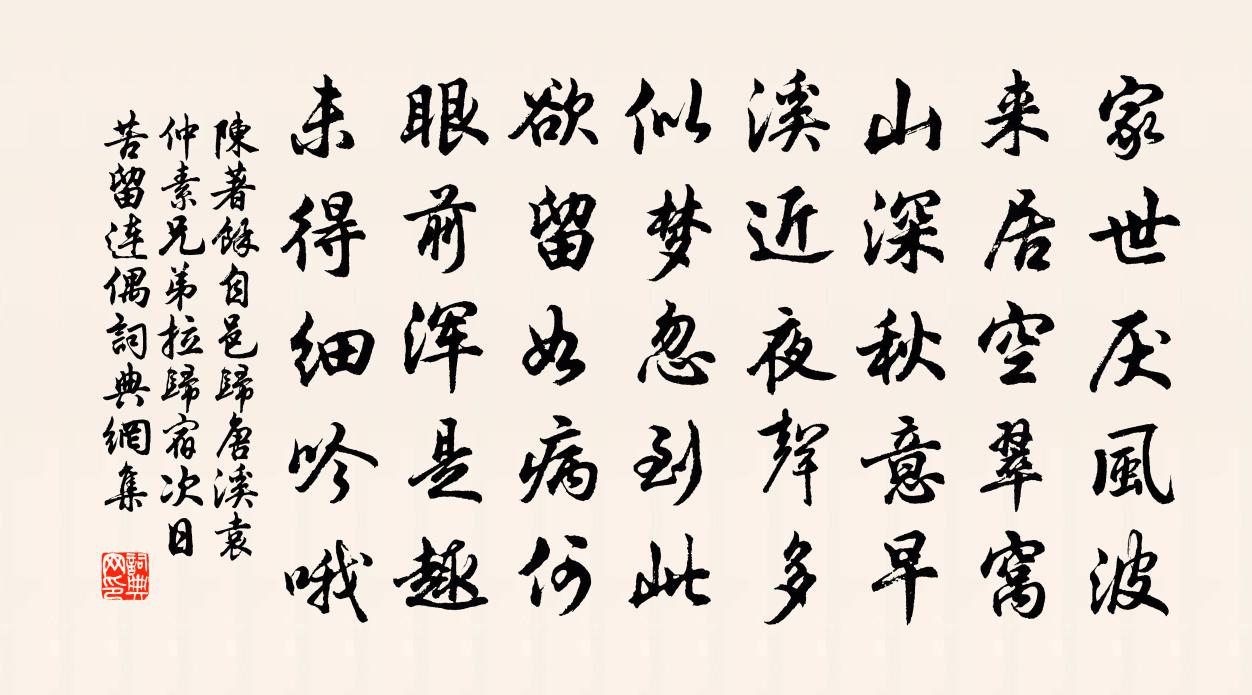 家世厌風波
来居空翠窩
山深秋意早
溪近夜聲多
似梦忽到此
欲留如病何
眼前浑是趣
未得细吟哦
陳著餘自邑歸唐溪袁
仲素兄弟拉歸宿次日
苦留连偶詞典網集
詞典
网印